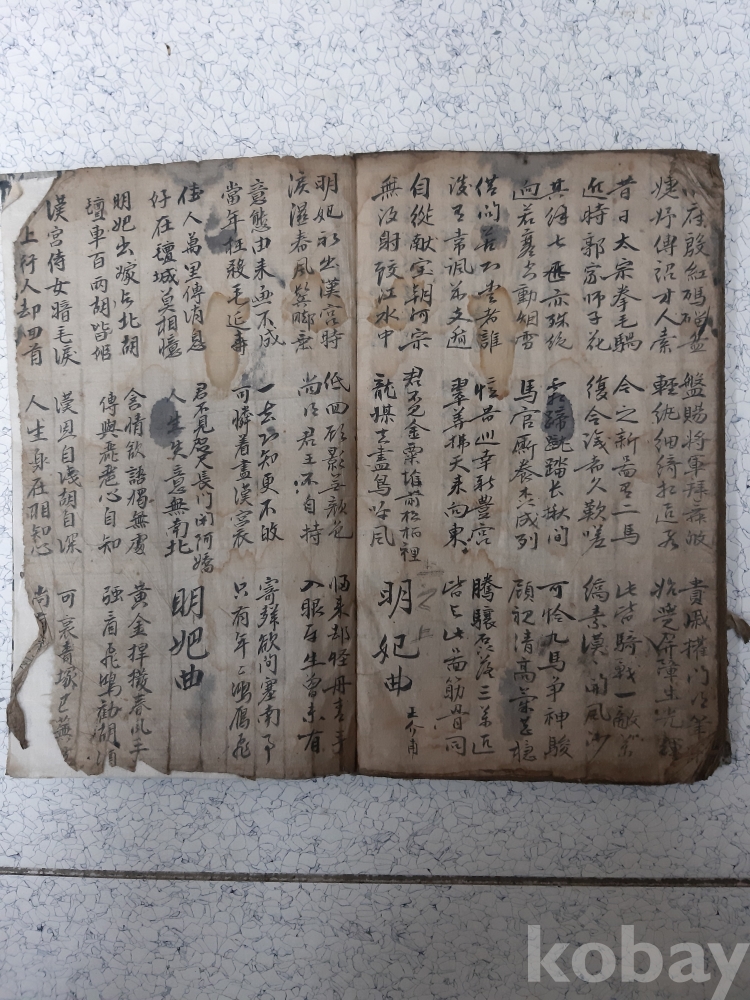 府殷紅碼碯盤
婕妤傳詔才人索
盤賜將軍拜舞皈
輕紈細綺相追飛
貴戚權門得筆
始覺屏障生光輝
昔日太宗拳毛騧
近時郭家師子花
今之新啚有二馬
復令識者久歎嗟
此皆騎戰一敵萬
縞素漠〻開風沙
其餘七匹亦殊絶
迥若寒空動烟雪
霜蹄蹴踏長楸間
馬官廝養森成列
可怜九馬爭神駿
顧視清高氣深穩
借問苦心愛者誰
後有韋諷前支遁
憶昔巡幸新豐宮
翠華拂天來向東
騰驤磊落三萬匹
皆與此啚筋骨同
自從献宝朝河宗
無復射蛟江水中
君不見金粟堆前松柏裡
龍媒去盡鳥呼風
明妃曲
王介甫
明妃初出漢宮時
淚濕春風鬢脚垂
低回顧影無顔色
尚得君王不自持
歸來却怪丹青手
入眼平生曾未有
意態由来画不成
當年枉殺毛延壽
一去心知更不皈
可憐着盡漢宮衣
寄聲欲問塞南事
只有年〻鴻鴈飛
佳人萬里傳消息
好在氊城莫相憶
君不見咫尺長門閉阿嬌
人生失意無南北
明妃曲
明妃出嫁与北胡
氊車百兩胡皆姬
含情欲語獨無處
傳與琵琶心自知
黃金捍撥春風手
彈看飛鴻勸胡酒
漢宮侍女暗垂淚
上行人却回首
漢恩自淺胡自深
人生樂在相知心
可哀青塚已蕪
尚
kobay